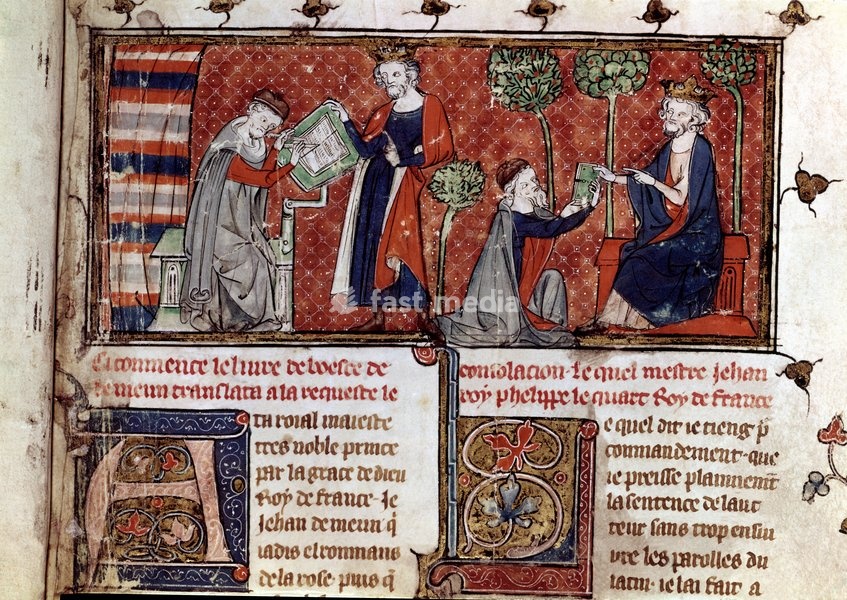 Ci commence le liure de boesce de consolacion. le quel mestre Jehan
de meun translata a la requeste le roy phelippe le quart Roy de france
A ta roial maieste
tres noble prince
par la grace de dieu
Roy de france. Je
Jehan de meun q̄
iadis el rommans
de la rose. puis q̄
Le quel dit ie tieng p̄
commandement. que
ie preisse plainnemēt
la sentence de lauc
teur sans trop ensui
ure les parolles du
latin. ie lai fait a
fast media